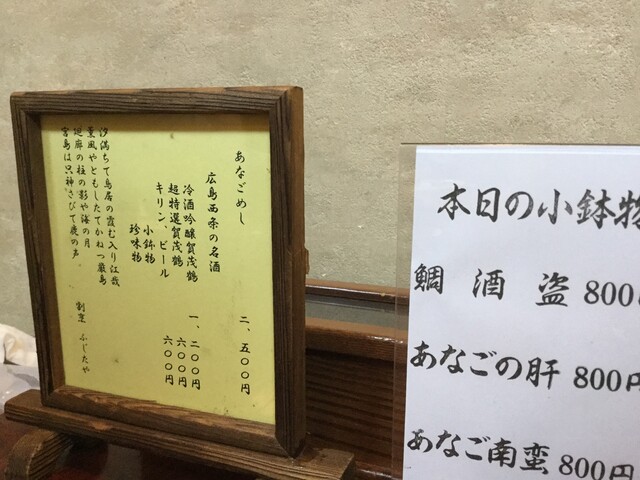 あなごめし 二、五〇〇円
広島西条の名酒
冷酒吟醸賀茂鶴 一、二〇〇円
超特選賀茂鶴 六〇〇円
キリン、ビール 六〇〇円
小鉢物
珍味物
汐満ちて鳥居の霞む入り江哉
薫風やともしたてかねつ厳島
廻廊の柱の影や海の月
宮島は只神さびて鹿の声
割烹 ふじたや
本日の小鉢物
鯛酒盗 800円
あなごの肝 800円
あなご南蛮 800円